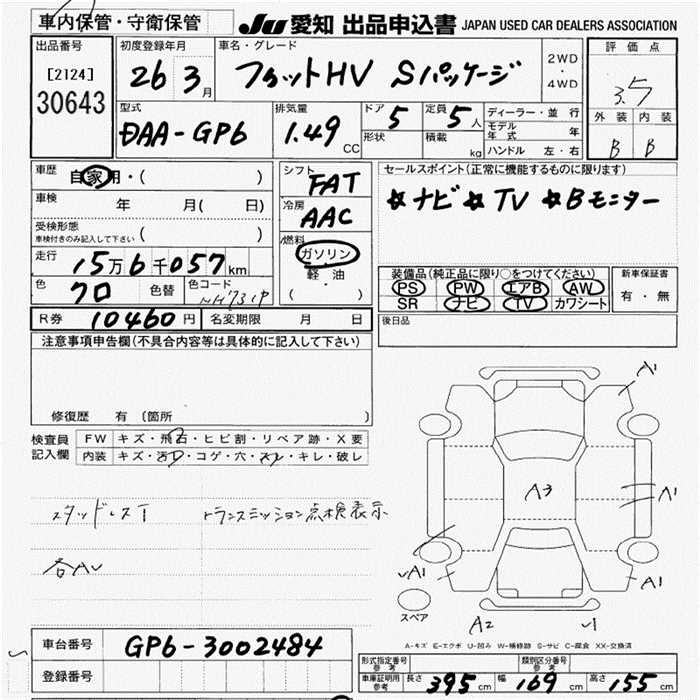 車内保管・守衛保管
JU 愛知 出品申込書 JAPAN USED CAR DEALERS ASSOCIATION
出品番号 初度登録年月 車名・グレード 評価点
[2124] 26 3月 フィットHV Sパッケージ 2WD・4WD 3.5
30643
型式 排気量 ドア 5 定員 5人 ディーラー・並行 外装 内装
DAA-GP6 1.49 CC 形状 積載 kg モデル年式 年 B B
ハンドル 左・右
車歴 自家用・( ) シフト FAT セールスポイント(正常に機能するものに限ります)
車検 年 月( 日) 冷房 AAC ☆ナビ☆TV ☆Bモニター
受検形態
車検付きのみ記入して下さい ( ) 燃料 ガソリン・軽油 ( )
走行 15万6千057km 装備品(純正品に限り○をつけてください) 新車保証書
色 クロ 色替 色コード NH731P PS PW エアB AW 有・無
SR ナビ TV カワシート
R券 10460円 名変期限 月 日 後日品
注意事項申告欄(不具合内容等は具体的に記入して下さい)
修復歴 有 (箇所 )
検査員 FW キズ・飛石・ヒビ割・リペア跡・X要
記入欄 内装 キズ・汚れ・コゲ・穴・スレ・キレ・破レ
スタッドレスT トランスミッション点検表示
各AU
A1
A3
A1
√A1
A1
スペア
A2
√1
A-キズ E-エクボ U-凹み W-補修跡 S-サビ C-腐食 XX-交換済
車台番号 GP6-3002484
登録番号
形式指定番号 参考 類別区分番号 参考
車庫証明用 参考 長さ 395cm 幅 169cm 高さ 155cm